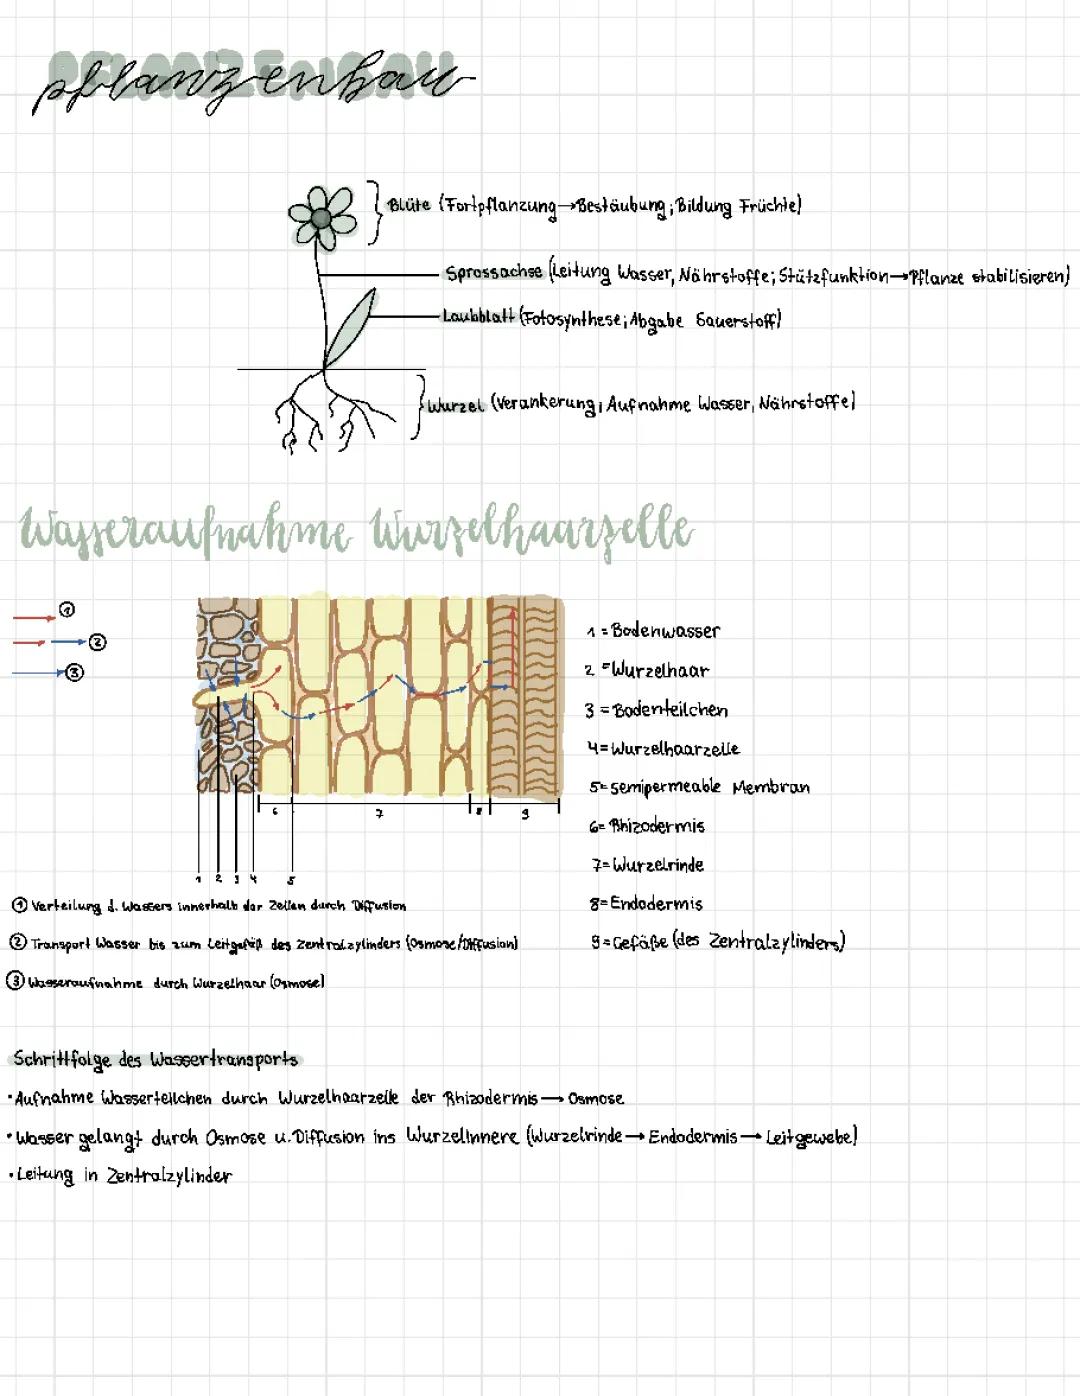 pflanzenbau
PFLANZENBAU
Blüte (Fortpflanzung→Bestäubung; Bildung Früchte)
Sprossachse (Leitung Wasser, Nährstoffe; Stützfunktion→Pflanze stabilisieren)
Laubblatt (Fotosynthese; Abgabe Sauerstoff)
Wurzel (Verankerung; Aufnahme Wasser, Nährstoffe)
Wasseraufnahme Wurzelhaarzelle
①
②
③
1 = Bodenwasser
2 = Wurzelhaar
3 = Bodenteilchen
4 = Wurzelhaarzelle
5 = semipermeable Membran
6 = Rhizodermis
7 = Wurzelrinde
8 = Endodermis
9 = Gefäße (des Zentralzylinders)
6 7 8 9
1 2 3 4 5
① Verteilung d. Wassers innerhalb der Zellen durch Diffusion
② Transport Wasser bis zum Leitgefäß des Zentralzylinders (Osmose/Diffusion)
③ Wasseraufnahme durch Wurzelhaar (Osmose)
Schrittfolge des Wassertransports
• Aufnahme Wasserteilchen durch Wurzelhaarzelle der Rhizodermis → Osmose
• Wasser gelangt durch Osmose u. Diffusion ins Wurzelinnere (Wurzelrinde → Endodermis → Leitgewebe)
• Leitung in Zentralzylinder